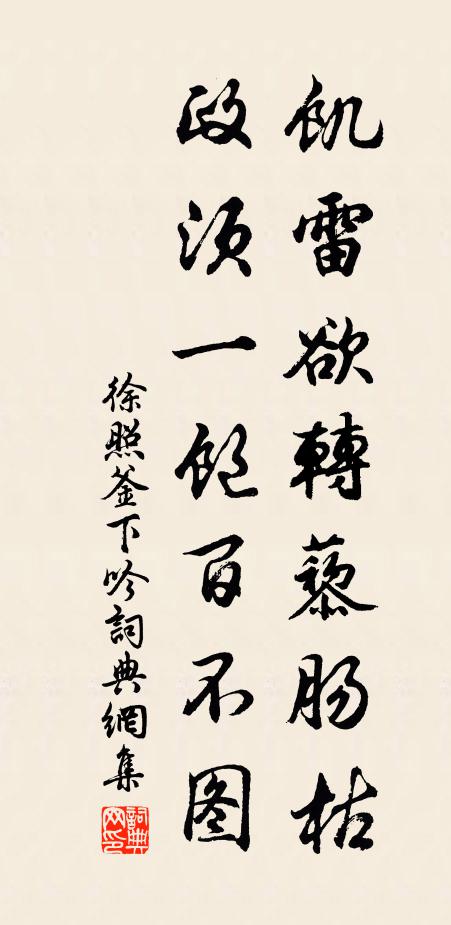 飢雷欲轉藜肠枯
政须一飽百不图
徐照釜下吟詞典網集
詞典網印